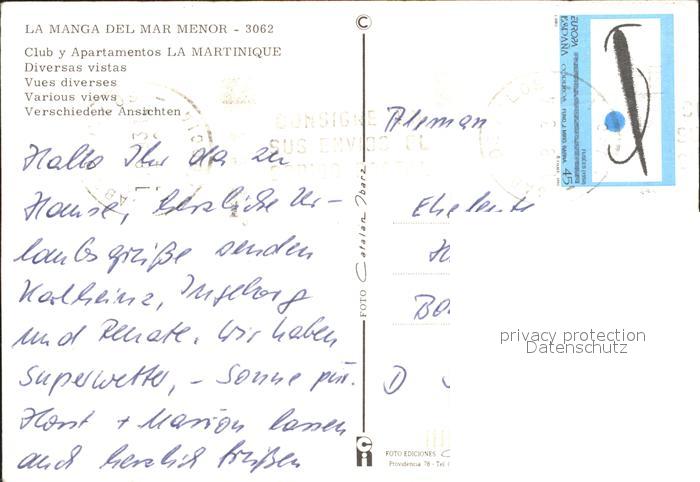 LA MANGA DEL MAR MENOR - 3062
Club y Apartamentos LA MARTINIQUE
Diversas vistas
Vues diverses
Various views
Verschiedene Ansichten
Hallo Ihr da zu
Hause, herzliche Ur-
laubsgrüße senden
Karlheinz, Ingeborg
und Renate. Wir haben
Superwetter, - Sonne pur.
Horst + Marion lassen
auch herzlich Grüßen
FOTO Catalan Ibarz
FOTO EDICIONES
Providencia 78 - Tel
CONSIGNE
SUS ENVIOS EL
EUROPA
ESPAÑA
45
Aleman
Eheleute
H
Bo
D
privacy protection
Datenschutz